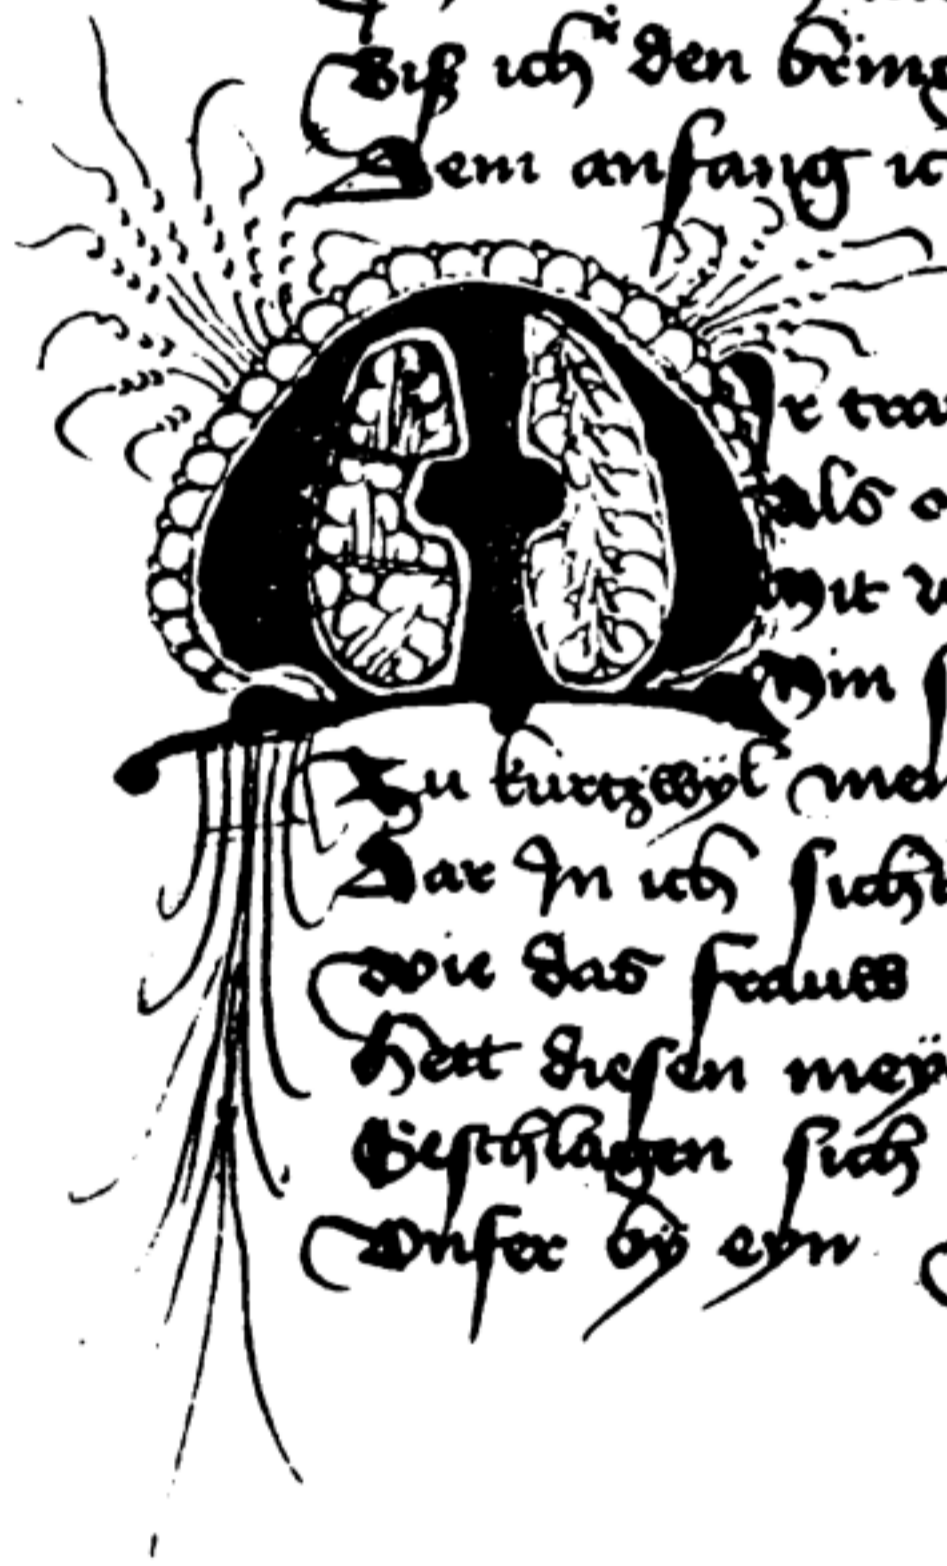 Biß ich den bring
Dem anfang ic
Er tra
Als o
Mit
Min
Zu kurtzwÿl
Dar In ich sich
Wie das frauwe
Hett diesen meÿ
Geschlagen sich
Vnser bÿ eyn